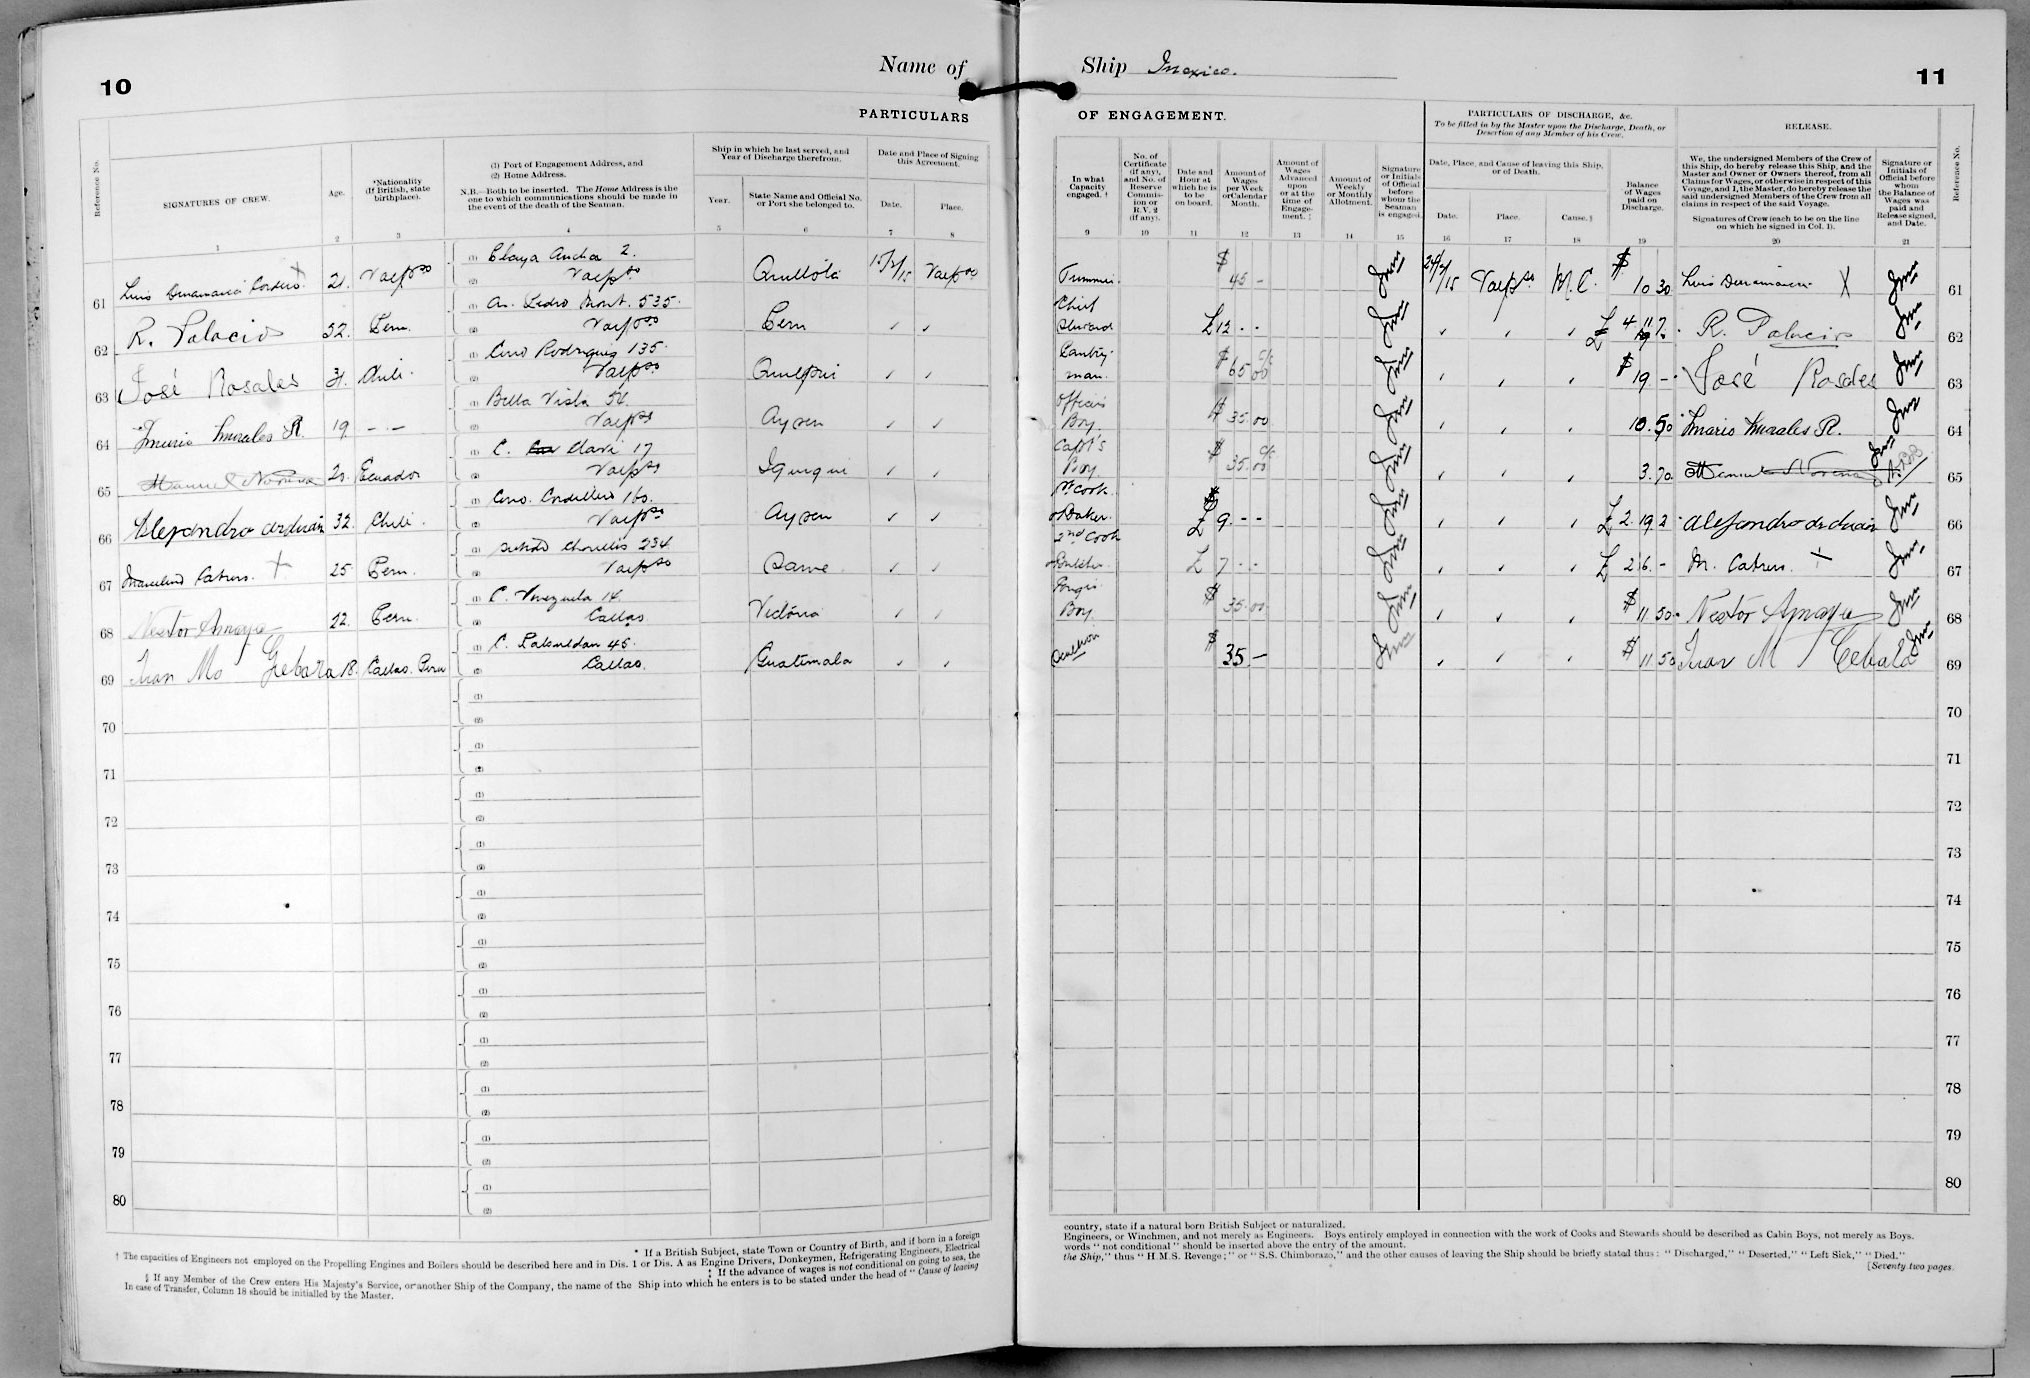 10
Name of
PARTICULARS
Reference No.
SIGNATURES OF CREW.
Age.
*Nationality
(If British, state
birthplace).
(1) Port of Engagement Address, and
(2) Home Address.
N.B.—Both to be inserted. The Home Address is the
one to which communications should be made in
the event of the death of the Seaman.
Ship in which he last served, and
Year of Discharge therefrom.
Year.
State Name and Official No.
or Port she belonged to.
Date and Place of Signing
this Agreement.
Date.
Place.
1 2 3 4 5 6 7 8
61 Luis 21. Valpso (1) Playa Ancha 2.
(2) Valpso
62 R. Palacios 32. Peru. (1) Av. Pedro Mont. 535. Peru
(2) Valpso
63 José Rosales 31. Chili. (1) Cerro Rodriguez 135.
(2) Valpso
64 Mario Morales R. 19 - . - (1) Bella Vista 54. Aysen
(2) Valpso
65 Ecuador (1) C. Clavé 17 Iquique
(2) Valpso
66 Alejandro 32. Chili. (1) Cerro. Cordillera 160. Aysen
(2) Valpso
67 + 25 Peru. (1) 234 Same
(2) Valpso
68 Nestor Amaya 22. Peru. (1) C. Venezuela 14. Victoria
(2) Callao
69 Juan Ma 18. Callao. Peru (1) C. 45. Guatemala
(2) Callao.
70 (1)
(2)
71 (1)
(2)
72 (1)
(2)
73 (1)
(2)
74 (1)
(2)
75 (1)
(2)
76 (1)
(2)
77 (1)
(2)
78 (1)
(2)
79 (1)
(2)
80 (1)
(2)
* If a British Subject, state Town or Country of Birth, and if born in a foreign
† The capacities of Engineers not employed on the Propelling Engines and Boilers should be described here and in Dis. 1 or Dis. A as Engine Drivers, Donkeymen, Refrigerating Engineers, Electrical
‡ If the advance of wages is not conditional on going to sea, the
§ If any Member of the Crew enters His Majesty's Service, or another Ship of the Company, the name of the Ship into which he enters is to be stated under the head of "Cause of leaving
In case of Transfer, Column 18 should be initialled by the Master.
Ship Mexico.
11
OF ENGAGEMENT.
In what
Capacity
engaged. †
No. of
Certificate
(if any),
and No. of
Reserve
Commis-
ion or
R.V. 2
(if any).
Date and
Hour at
which he is
to be
on board.
Amount of
Wages
per Week
or Calendar
Month.
Amount of
Wages
Advanced
upon
or at the
time of
Engage-
ment. ‡
Amount of
Weekly
or Monthly
Allotment.
Signature
or Initials
of Official
before
whom the
Seaman
is engaged.
PARTICULARS OF DISCHARGE, &c.
To be filled in by the Master upon the Discharge, Death, or
Desertion of any Member of his Crew.
Date, Place, and Cause of leaving this Ship,
or of Death.
Date.
Place.
Cause. §
Balance
of Wages
paid on
Discharge.
RELEASE.
We, the undersigned Members of the Crew of
this Ship, do hereby release this Ship, and the
Master and Owner or Owners thereof, from all
Claims for Wages, or otherwise in respect of this
Voyage, and I, the Master, do hereby release the
said undersigned Members of the Crew from all
claims in respect of the said Voyage.
Signatures of Crew (each to be on the line
on which he signed in Col. 1).
Signature or
Initials of
Official before
whom
the Balance of
Wages was
paid and
Release signed,
and Date.
Reference No.
9 10 11 12 13 14 15 16 17 18 19 20 21
Trimmer. $ 45 - Valpso M.C. $ 10 30 Luis X 61
Chief
Steward £12 - - R. Palacios 62
Pantry-
man. $ 65 00 $ 19 - José Rosales 63
Officers
Boy. $ 35.00 10.50 Mario Morales R. 64
Capt's
Boy $ 35.00 3.70 65
Cook
& Baker. £ 9. - - £ 2. 19 2 Alejandro 66
2nd Cook
& Butcher £ 7 - - £ 2 6. - M. + 67
Boy $ 35.00 $ 11.50 Nestor Amaya 68
$ 35. — $ 11.50 Juan M 69
70
71
72
73
74
75
76
77
78
79
80
country, state if a natural born British Subject or naturalized.
Engineers, or Winchmen, and not merely as Engineers. Boys entirely employed in connection with the work of Cooks and Stewards should be described as Cabin Boys, not merely as Boys.
words "not conditional" should be inserted above the entry of the amount.
the Ship," thus "H.M.S. Revenge;" or "S.S. Chimborazo," and the other causes of leaving the Ship should be briefly stated thus: "Discharged," "Deserted," "Left Sick," "Died."
[Seventy two pages.